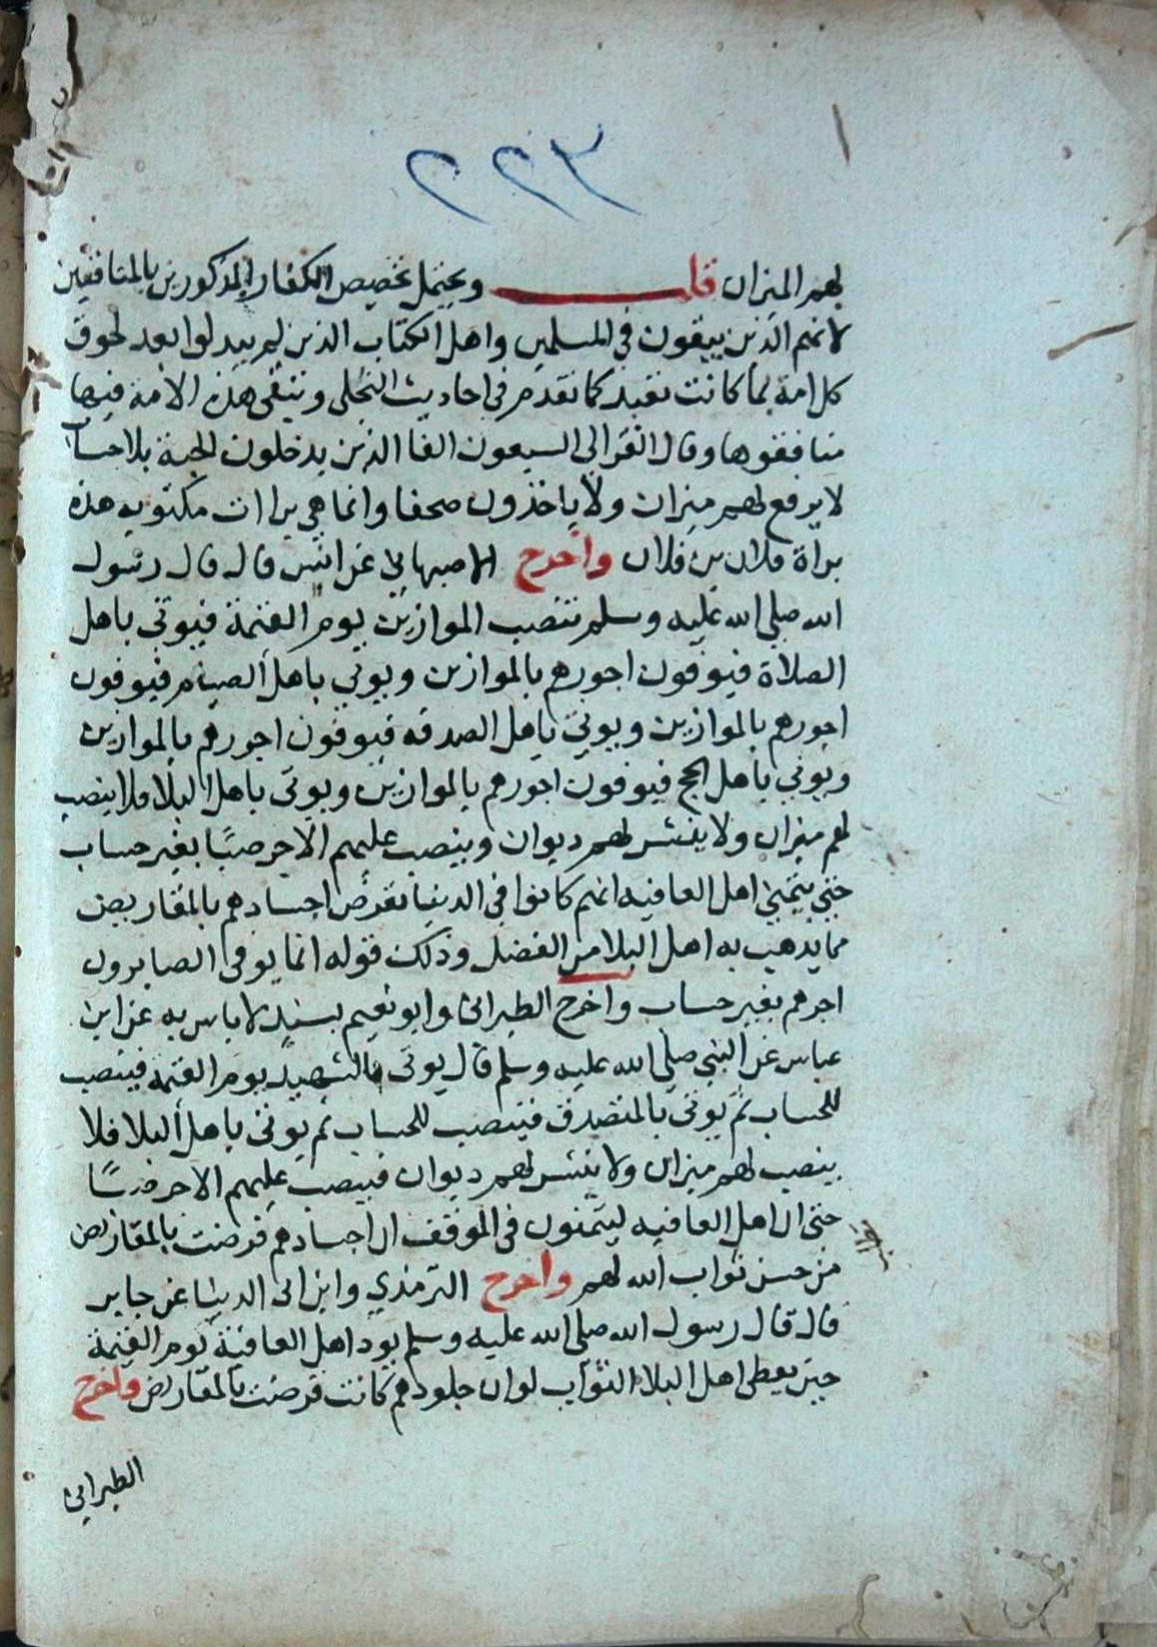 ٢٢٣
لهم الميزان قلت ويحتمل تخصيص الكفار المذكورين بالمنافقين
لانهم الذين يبقون في المسلمين واهل الكتاب الذين لم يبدلوا بعد لحوق
كل امة بما كانت تعبد كما تقدم في احاديث التجلي وتبقى هذه الامة فيها
منافقوها وقال الغزالي السبعون الفا الذين يدخلون الجنة بلا حساب
لا يرفع لهم ميزان ولا ياخذون صحفا وانما هي براات مكتوبه هذه
براة فلان بن فلان واخرج الاصبهاني عن انس قال قال رسول
الله صلى الله عليه وسلم تنصب الموازين يوم القيمة فيوتى باهل
الصلاة فيوفون اجورهم بالموازين ويوتى باهل الصيام فيوفون
اجورهم بالموازين ويوتى باهل الصدقه فيوفون اجورهم بالموازين
ويوتى باهل الحج فيوفون اجورهم بالموازين ويوتى باهل البلا فلا ينصب
لهم ميزان ولا ينشر لهم ديوان وينصب عليهم الاجر صبًا بغير حساب
حتى يتمنى اهل العافيه انهم كانوا في الدنيا تقرض اجسادهم بالمقاريض
مما يذهب به اهل البلا من الفضل وذلك قوله انما يوفى الصابرون
اجرهم بغير حساب واخرج الطبراني وابو نعيم بسند لا باس به عن ابن
عباس عن النبي صلى الله عليه وسلم قال يوتى بالشهيد يوم القيمة فينصب
للحساب ثم يوتى بالمتصدق فينصب للحساب ثم يوتى باهل البلا فلا
ينصب لهم ميزان ولا ينشر لهم ديوان فينصب عليهم الاجر صبًا
حتى ان اهل العافيه ليتمنون في الموقف ان اجسادهم قرضت بالمقاريض
من حسن ثواب الله لهم واخرج الترمذي وابن ابي الدنيا عن جابر
قال قال رسول الله صلى الله عليه وسلم يود اهل العافية يوم القيمة
حين يعطى اهل البلاء الثواب لو ان جلودهم كانت قرضت بالمقاريض واخرج
الطبراني